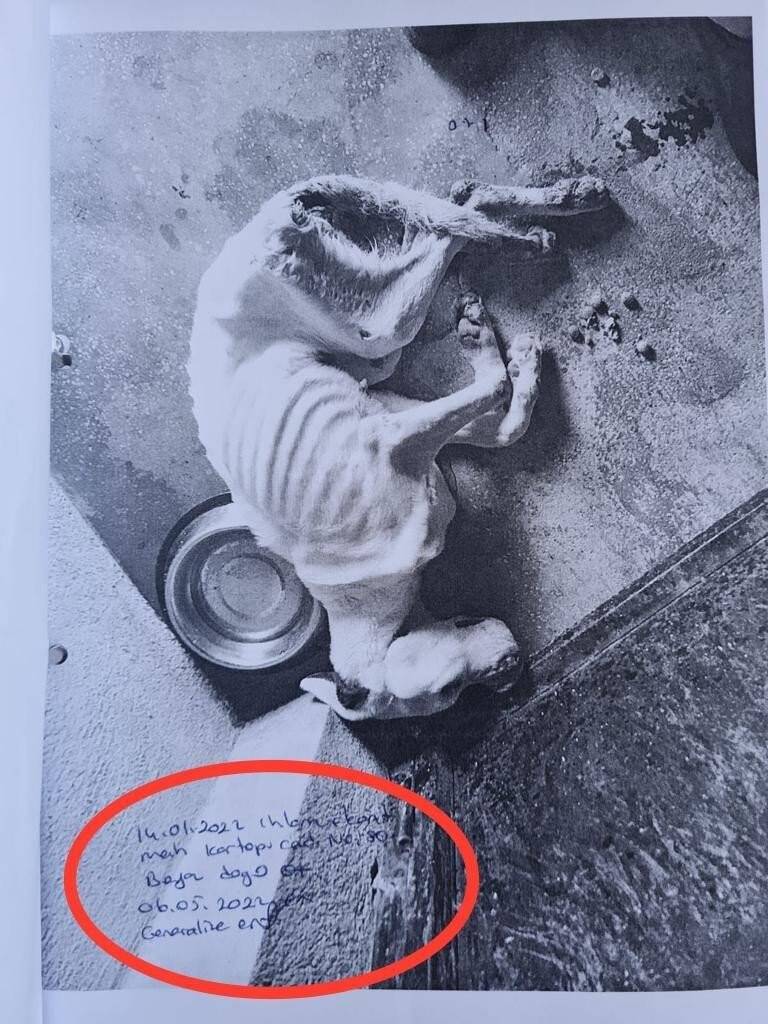 071
14.01.2022 Ihlamurkent
mah kartopu cad. No:30
Beyaz dogo
06.05.2022
Generalize